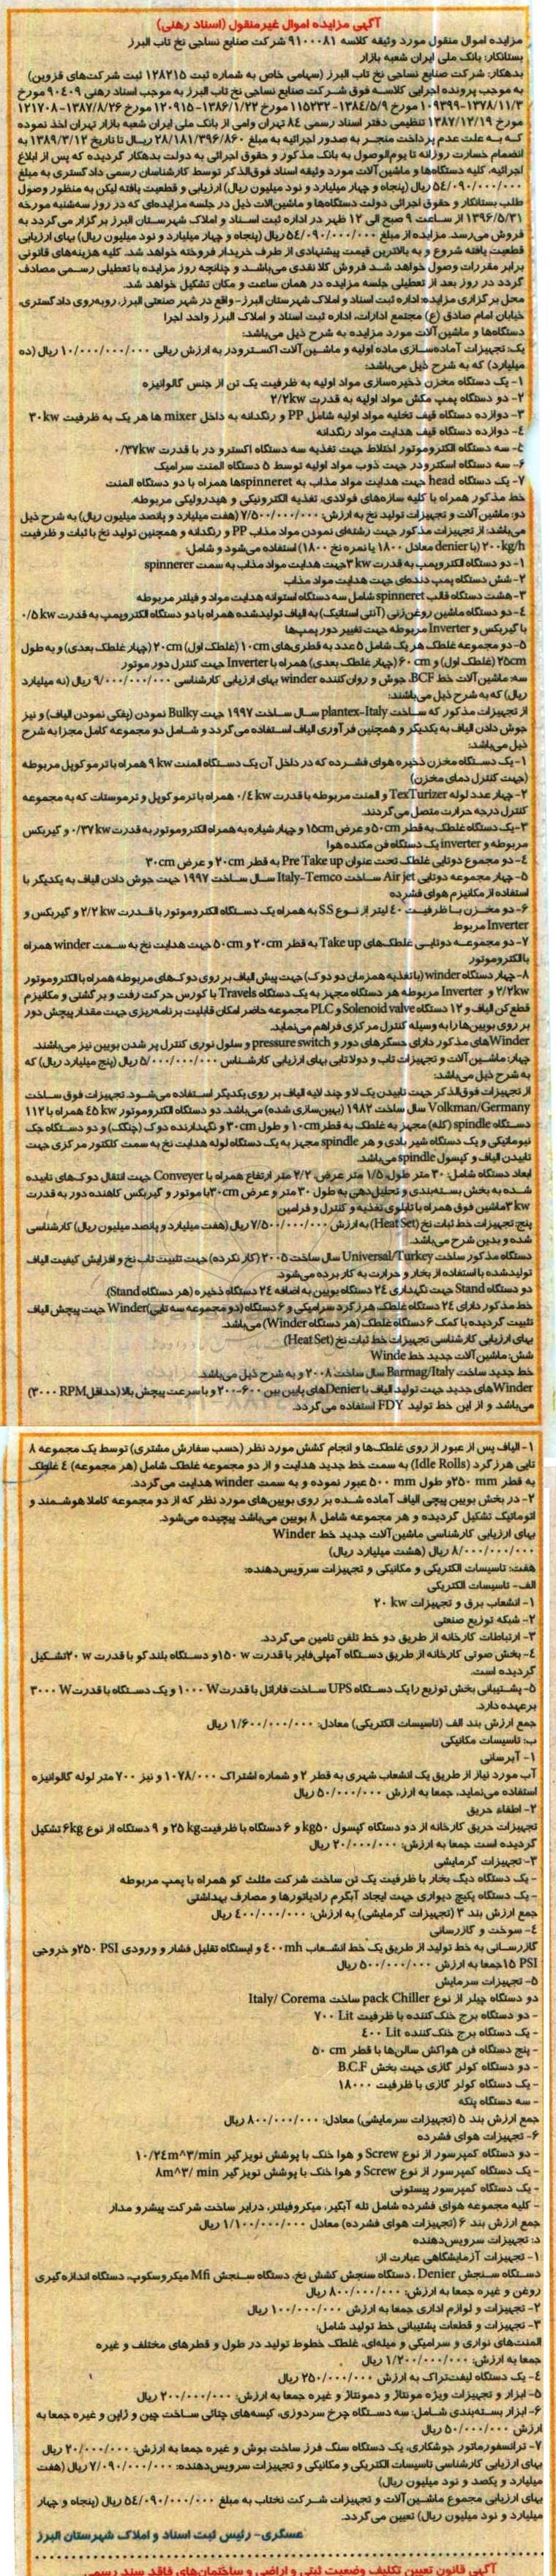 آگهی مزایده اموال غیرمنقول (اسناد رهنی)
مزایده اموال منقول مورد وثیقه کلاسه ۹۱۰۰۰۸۱ شرکت صنایع نساجی نخ تاب البرز
بستانکار: بانک ملی ایران شعبه بازار
بدهکار: شرکت صنایع نساجی نخ تاب البرز (سهامی خاص به شماره ثبت ۱۲۸۲۱۵ ثبت شرکت‌های قزوین)
به موجب پرونده اجرایی کلاسه فوق شرکت صنایع نساجی نخ تاب البرز به موجب اسناد رهنی ۹۰۴۰۹ مورخ
۱۳۷۸/۱۱/۳-۱۰۹۳۹۹ مورخ ۱۳۸۴/۵/۹-۱۱۵۲۳۲ مورخ ۱۳۸۶/۱/۲۲-۱۲۰۹۱۵ مورخ ۱۳۸۷/۸/۲۶-۱۲۱۷۰۸
مورخ ۱۳۸۷/۱۲/۱۹ تنظیمی دفتر اسناد رسمی ۸۴ تهران وامی از بانک ملی ایران شعبه بازار تهران اخذ نموده
که به علت عدم پرداخت منجر به صدور اجرائیه به مبلغ ۲۸/۱۸۱/۳۹۶/۸۶۰ ریال تا تاریخ ۱۳۸۹/۳/۱۲ به
انضمام خسارت روزانه تا یوم‌الوصول به بانک مذکور و حقوق اجرائی به دولت بدهکار گردیده که پس از ابلاغ
اجرائیه، کلیه دستگاه‌ها و ماشین‌آلات مورد وثیقه اسناد فوق‌الذکر توسط کارشناسان رسمی دادگستری به مبلغ
۵۴/۰۹۰/۰۰۰/۰۰۰ ریال (پنجاه و چهار میلیارد و نود میلیون ریال) ارزیابی و قطعیت یافته لیکن به منظور وصول
طلب بستانکار و حقوق اجرائی دولت دستگاه‌ها و ماشین‌الات ذیل در جلسه مزایده‌ای که در روز سه‌شنبه مورخه
۱۳۹۶/۵/۳۱ از ساعت ۹ صبح الی ۱۲ ظهر در اداره ثبت اسناد و املاک شهرستان البرز برگزار می‌گردد به
فروش می‌رسد. مزایده از مبلغ ۵۴/۰۹۰/۰۰۰/۰۰۰ ریال (پنجاه و چهار میلیارد و نود میلیون ریال) بهای ارزیابی
قطعیت یافته شروع و به بالاترین قیمت پیشنهادی از طرف خریدار فروخته خواهد شد. کلیه هزینه‌های قانونی
برابر مقررات وصول خواهد شد فروش کلا نقدی می‌باشد و چنانچه روز مزایده با تعطیلی رسمی مصادف
گردد در روز بعد از تعطیلی جلسه مزایده در همان ساعت و مکان تشکیل خواهد شد.
محل برگزاری مزایده: اداره ثبت اسناد و املاک شهرستان البرز- واقع در شهر صنعتی البرز، روبه‌روی دادگستری،
خیابان امام صادق (ع) مجتمع ادارات، اداره ثبت اسناد و املاک البرز واحد اجرا
دستگاه‌ها و ماشین‌آلات مورد مزایده به شرح ذیل می‌باشد:
یک: تجهیزات آماده‌سازی ماده اولیه و ماشین‌آلات اکسترودر به ارزش ریالی ۱۰/۰۰۰/۰۰۰/۰۰۰ ریال (ده
میلیارد) که به شرح ذیل می‌باشد:
۱- یک دستگاه مخزن ذخیره‌سازی مواد اولیه به ظرفیت یک تن از جنس گالوانیزه
۲- دو دستگاه پمپ مکش مواد اولیه به قدرت ۲/۲kw
۳- دوازده دستگاه قیف تخلیه مواد اولیه شامل PP و رنگدانه به داخل mixer ها هر یک به ظرفیت ۳۰kw
۴- دوازده دستگاه قیف هدایت مواد رنگدانه
۵- سه دستگاه الکتروموتور اختلاط جهت تغذیه سه دستگاه اکسترو در با قدرت ۰/۳۷kw
۶- سه دستگاه اسکترودر جهت ذوب مواد اولیه توسط ۵ دستگاه المنت سرامیک
۷- یک دستگاه head جهت هدایت مواد مذاب به spinneretها همراه با دو دستگاه المنت
خط مذکور همراه با کلیه سازه‌های فولادی، تغذیه الکترونیکی و هیدرولیکی مربوطه.
دو: ماشین‌آلات و تجهیزات تولید نخ به ارزش: ۷/۵۰۰/۰۰۰/۰۰۰ (هفت میلیارد و پانصد میلیون ریال) به شرح ذیل
می‌باشد: از تجهیزات مذکور جهت رشته‌ای نمودن مواد مذاب PP و رنگدانه و همچنین تولید نخ با ثبات و ظرفیت
۲۰۰kg/h (با denier معادل ۱۸۰۰ یا نمره نخ ۱۸۰۰) استفاده می‌شود و شامل:
۱- دو دستگاه الکتروپمپ به قدرت ۳kw جهت هدایت مواد مذاب به سمت spinnerer
۲- شش دستگاه پمپ دنده‌ای جهت هدایت مواد مذاب
۳- هشت دستگاه قالب spinneret شامل سه دستگاه استوانه هدایت مواد و فیلتر مربوطه
۴- دو دستگاه ماشین روغن‌زنی (آنتی استاتیک) به الیاف تولیدشده همراه با دو دستگاه الکتروپمپ به قدرت ۰/۵kw
با گیربکس و Inverter مربوطه جهت تغییر دور پمپ‌ها
۵- دو مجموعه غلطک هر یک شامل ۵ عدد به قطری‌های ۱۰cm (غلطک اول) ۲۰cm (چهار غلطک بعدی) و به طول
۲۵cm (غلطک اول) و ۶۰cm (چهار غلطک بعدی) همراه با Inverter جهت کنترل دور موتور
سه: ماشین‌آلات خط BCF، جوش و روان‌کننده winder بهای ارزیابی کارشناسی ۹/۰۰۰/۰۰۰/۰۰۰ ریال (نه میلیارد
ریال) که به شرح ذیل می‌باشند:
از تجهیزات مذکور که ساخت plantex-Italy سال ساخت ۱۹۹۷ جهت Bulky نمودن (پفکی نمودن الیاف) و نیز
جوش دادن الیاف به یکدیگر و همچنین فرآوری الیاف استفاده می‌گردد و شامل دو مجموعه کامل مجزا به شرح
ذیل می‌باشد:
۱- یک دستگاه مخزن ذخیره هوای فشرده که در داخل آن یک دستگاه المنت ۹kw همراه با ترموکوپل مربوطه
(جهت کنترل دمای مخزن)
۲- چهار عدد لوله TexTurizer و المنت مربوطه با قدرت ۰/۴kw همراه با ترموکوپل و ترموستات که به مجموعه
کنترل درجه حرارت متصل می‌گردند.
۳- یک دستگاه غلطک به قطر ۵۰cm و عرض ۱۵cm و چهار شیاره به همراه الکتروموتور به قدرت ۰/۳۷kw و گیربکس
مربوطه و inverter یک دستگاه فن مکنده هوا
۴- دو مجموع دوتایی غلطک تحت عنوان Pre Take up به قطر ۲۰cm و عرض ۳۰cm
۵- چهار مجموعه دوتایی Air jet ساخت Italy-Temco سال ساخت ۱۹۹۷ جهت جوش دادن الیاف به یکدیگر با
استفاده از مکانیزم هوای فشرده
۶- دو مخزن با ظرفیت ۴۰ لیتر از نوع SS به همراه یک دستگاه الکتروموتور با قدرت ۲/۲kw و گیربکس و
Inverter مربوط
۷- دو مجموعه دوتایی غلطک‌های Take up به قطر ۲۰cm و ۵۰cm جهت هدایت نخ به سمت winder همراه
با الکتروموتور
۸- چهار دستگاه winder (با تغذیه همزمان دو دوک) جهت پیش الیاف بر روی دوک‌های مربوطه همراه با الکتروموتور
۲/۲kw و Inverter مربوطه هر دستگاه مجهز به یک دستگاه Travels با کورس حرکت رفت و برگشتی و مکانیزم
قطع‌کن الیاف و ۱۲ دستگاه Solenoid valve و PLC مجموعه حاضر امکان قابلیت برنامه‌ریزی جهت مقدار پیچش دور
بر روی بوبین‌ها را به وسیله کنترل مرکزی فراهم می‌نماید.
Winderهای مذکور دارای حسگرهای دور و pressure switch و سلول نوری کنترل پر شدن بوبین نیز می‌باشند.
چهار: ماشین‌آلات و تجهیزات تاب و دولا تابی بهای ارزیابی کارشناس ۵/۰۰۰/۰۰۰/۰۰۰ ریال (پنج میلیارد ریال) که
به شرح ذیل می‌باشد:
از تجهیزات فوق‌الذکر جهت تابیدن یک لا و چند لایه الیاف بر روی یکدیگر استفاده می‌شود. تجهیزات فوق ساخت
Volkman/Germany سال ساخت ۱۹۸۲ (بهین‌سازی شده) می‌باشد. دو دستگاه الکتروموتور ۴۵kw همراه با ۱۱۲
دستگاه spindle (کله) مجهز به غلطک به قطر ۱۰cm و طول ۳۰cm و نگهدارنده دوک (چنگک) و دو دستگاه جک
نیوماتیکی و یک دستگاه شیر بادی و هر spindle مجهز به یک دستگاه لوله هدایت نخ به سمت کلکتور مرکزی جهت
تابیدن الیاف و کپسول spindle می‌باشد.
ابعاد دستگاه شامل: ۳۰ متر طول، ۱/۵ متر عرض، ۲/۲ متر ارتفاع همراه با Conveyer جهت انتقال دوک‌های تابیده
شده به بخش بسته‌بندی و تحلیل‌دهی به طول ۳۰ متر و عرض ۳۰cm با موتور و گیربکس کاهنده دور به قدرت
۳kw ماشین فوق همراه با تابلوی تغذیه و کنترل و فرامین
پنج: تجهیزات خط ثبات نخ (Heat Set) به ارزش ۷/۵۰۰/۰۰۰/۰۰۰ ریال (هفت میلیارد و پانصد میلیون ریال) کارشناسی
شده و بدین شرح می‌باشد.
دستگاه مذکور ساخت Universal/Turkey سال ساخت ۲۰۰۵ (کار نکرده) جهت تثبیت تاب نخ و افزایش کیفیت الیاف
تولیدشده با استفاده از بخار و حرارت به کار برده می‌شود.
دو دستگاه Stand جهت نگهداری ۲۴ دستگاه بوبین به اضافه ۲۴ دستگاه ذخیره (هر دستگاه Stand)
خط مذکور دارای ۲۴ دستگاه غلطک هرزگرد سرامیکی و ۶ دستگاه (دو مجموعه سه تایی) Winder جهت پیچش الیاف
تثبیت گردیده با کمک ۶ دستگاه غلطک (هر دستگاه Winder) می‌باشد.
بهای ارزیابی کارشناسی تجهیزات خط ثبات نخ (Heat Set)
شش: ماشین‌آلات جدید خط Winde
خط جدید ساخت Barmag/Italy سال ساخت ۲۰۰۸ و به شرح ذیل می‌باشد.
Winderهای جدید جهت تولید الیاف با Denierهای پایین بین ۶۰۰-۲۰۰ و با سرعت پیچش بالا (حداقل ۳۰۰۰ RPM)
می‌باشد و از این خط تولید FDY استفاده می‌گردد.
۱- الیاف پس از عبور از روی غلطک‌ها و انجام کشش مورد نظر (حسب سفارش مشتری) توسط یک مجموعه ۸
تایی هرزگرد (Idle Rolls) به سمت خط جدید هدایت و از دو مجموعه غلطک شامل (هر مجموعه) ۴ غلطک
به قطر ۲۵۰ mm و طول ۵۰۰ mm عبور نموده و به سمت winder هدایت می‌گردد.
۲- در بخش بوبین پیچی الیاف آماده شده بر روی بوبین‌های مورد نظر که از دو مجموعه کاملا هوشمند و
اتوماتیک تشکیل گردیده و هر مجموعه شامل ۸ بوبین می‌باشد پیچیده می‌شود.
بهای ارزیابی کارشناسی ماشین‌آلات جدید خط Winder
۸/۰۰۰/۰۰۰/۰۰۰ ریال (هشت میلیارد ریال)
هفت: تاسیسات الکتریکی و مکانیکی و تجهیزات سرویس‌دهنده:
الف- تاسیسات الکتریکی
۱- انشعاب برق و تجهیزات ۲۰ kw
۲- شبکه توزیع صنعتی
۳- ارتباطات کارخانه از طریق دو خط تلفن تامین می‌گردد.
۴- بخش صوتی کارخانه از طریق دستگاه آمپلی‌فایر با قدرت ۱۵۰ w و دستگاه بلندگو با قدرت ۲۰ w تشکیل
گردیده است.
۵- پشتیبانی بخش توزیع را یک دستگاه UPS ساخت فاراتل با قدرت ۱۰۰۰ W و یک دستگاه با قدرت ۳۰۰۰ W
برعهده دارد.
جمع ارزش بند الف (تاسیسات الکتریکی) معادل: ۱/۶۰۰/۰۰۰/۰۰۰ ریال
ب: تاسیسات مکانیکی
۱- آبرسانی
آب مورد نیاز از طریق یک انشعاب شهری به قطر ۲ و شماره اشتراک ۱۰۷۸/۰۰۰ و نیز ۷۰۰ متر لوله گالوانیزه
استفاده می‌نماید، جمعا به ارزش ۵۰/۰۰۰/۰۰۰ ریال
۲- اطفاء حریق
تجهیزات حریق کارخانه از دو دستگاه کپسول ۵۰kg و ۶ دستگاه با ظرفیت ۲۵kg و ۹ دستگاه از نوع ۶kg تشکیل
گردیده است جمعا به ارزش: ۲۰/۰۰۰/۰۰۰ ریال
۳- تجهیزات گرمایشی
- یک دستگاه دیگ بخار با ظرفیت یک تن ساخت شرکت مثلث کو همراه با پمپ مربوطه
- یک دستگاه پکیج دیواری جهت ایجاد آبگرم رادیاتورها و مصارف بهداشتی
جمع ارزش بند ۳ (تجهیزات گرمایشی) به ارزش: ۴۰۰/۰۰۰/۰۰۰ ریال
۴- سوخت و گازرسانی
گازرسانی به خط تولید از طریق یک خط انشعاب ۴۰۰mh و ایستگاه تقلیل فشار و ورودی ۲۵۰ PSI و خروجی
۱۵ PSI جمعا به ارزش ۵۰۰/۰۰۰/۰۰۰ ریال
۵- تجهیزات سرمایش
دو دستگاه چیلر از نوع pack Chiller ساخت Italy/ Corema
- دو دستگاه برج خنک‌کننده با ظرفیت ۷۰۰ Lit
- یک دستگاه برج خنک‌کننده ۴۰۰ Lit
- پنج دستگاه فن هواکش سالن‌ها با قطر ۵۰ cm
- دو دستگاه کولر گازی جهت بخش B.C.F
- یک دستگاه کولر گازی با ظرفیت ۱۸۰۰۰
- سه دستگاه پنکه
جمع ارزش بند ۵ (تجهیزات سرمایشی) معادل: ۸۰۰/۰۰۰/۰۰۰ ریال
۶- تجهیزات هوای فشرده
- دو دستگاه کمپرسور از نوع Screw و هوا خنک با پوشش نویزگیر ۱۰/۲۴m^۳/min
- یک دستگاه کمپرسور از نوع Screw و هوا خنک با پوشش نویزگیر ۸m^۳/ min
- یک دستگاه کمپرسور پیستونی
- کلیه مجموعه هوای فشرده شامل تله آبگیر، میکروفیلتر، درایر ساخت شرکت پیشرو مدار
جمع ارزش بند ۶ (تجهیزات هوای فشرده) معادل ۱/۱۰۰/۰۰۰/۰۰۰ ریال
د: تجهیزات سرویس‌دهنده
۱- تجهیزات آزمایشگاهی عبارت از:
دستگاه سنجش Denier، دستگاه سنجش کشش نخ، دستگاه سنجش Mfi میکروسکوپ، دستگاه اندازه‌گیری
روغن و غیره جمعا به ارزش: ۸۰۰/۰۰۰/۰۰۰ ریال
۲- تجهیزات و لوازم اداری جمعا به ارزش ۱۰۰/۰۰۰/۰۰۰ ریال
۳- تجهیزات و قطعات پشتیبانی خط تولید شامل:
المنت‌های نواری و سرامیکی و میله‌ای، غلطک خطوط تولید در طول و قطرهای مختلف و غیره
جمعا به ارزش: ۱/۲۰۰/۰۰۰/۰۰۰ ریال
۴- یک دستگاه لیفت‌تراک به ارزش ۲۵۰/۰۰۰/۰۰۰ ریال
۵- ابزار و تجهیزات ویژه مونتاژ و دمونتاژ و غیره جمعا به ارزش: ۲۰۰/۰۰۰/۰۰۰ ریال
۶- ابزار بسته‌بندی شامل: سه دستگاه چرخ سردوزی، کیسه‌های چتائی ساخت چین و ژاپن و غیره جمعا به
ارزش ۵۰/۰۰۰/۰۰۰ ریال
۷- ترانسفورماتور جوشکاری، یک دستگاه سنگ فرز ساخت بوش و غیره جمعا به ارزش: ۲۰/۰۰۰/۰۰۰ ریال
بهای ارزیابی کارشناسی تاسیسات الکتریکی و مکانیکی و تجهیزات سرویس‌دهنده: ۷/۰۹۰/۰۰۰/۰۰۰ ریال (هفت
میلیارد و یکصد و نود میلیون ریال)
بهای ارزیابی مجموع ماشین‌آلات و تجهیزات شرکت نختاب به مبلغ ۵۴/۰۹۰/۰۰۰/۰۰۰ ریال (پنجاه و چهار
میلیارد و نود میلیون ریال) تعیین می‌گردد.
عسگری- رئیس ثبت اسناد و املاک شهرستان البرز
آگهی قانون تعیین تکلیف وضعیت ثبتی و اراضی و ساختمان‌های فاقد سند رسمی